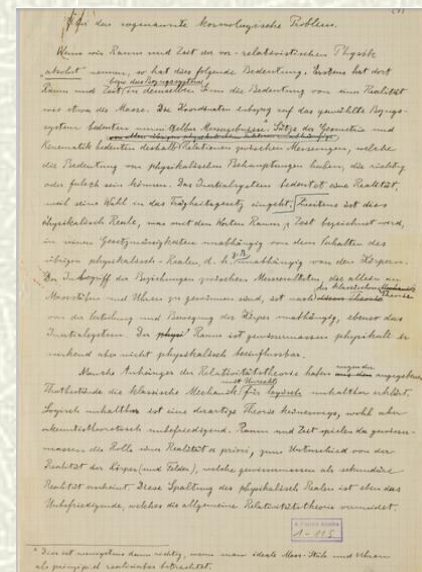 Über das sogenannte kosmologische Problem.
Wenn wir Raum und Zeit der vor-relativistischen Physik
"absolut" nennen, so hat dies folgende Bedeutung. Erstens hat dort
Raum und Zeit in demselben Sinn die Bedeutung von einer Realität
wie etwa die Masse. Die Koordinaten bezogen auf das gewählte Bezugs-
system bedeuten unmittelbar Messergebnisse. Sätze der Geometrie und
Kinematik bedeuten deshalb Relationen zwischen Messungen, welche
die Bedeutung von physikalischen Behauptungen haben, die richtig
oder falsch sein können. Das Inertialsystem bedeutet eine Realität,
weil seine Wahl in das Trägheitsgesetz eingeht. Zweitens ist dies
Physikalisch Reale, was mit den Worten Raum, Zeit bezeichnet wird,
in seinen Gesetzmässigkeiten unabhängig von dem Verhalten des
übrigen physikalisch-Realen, d. h. z. B. unabhängig von den Körpern.
Der Inbegriff der Beziehungen zwischen Messresultaten, die allein an
Massstäben und Uhren zu gewinnen sind, ist nach
der klassischen Theorie
von der Verteilung und Bewegung der Körper unabhängig, ebenso das
Inertialsystem. Der Raum ist gewissermassen physikalisch
wirkend aber nicht physikalisch beeinflussbar.
Manche Anhänger der Relativitätstheorie haben angegebenen
mit Unrecht
Thatbestände die klassische Mechanik für logisch unhaltbar erklärt.
Logisch unhaltbar ist eine derartige Theorie keineswegs, wohl aber
erkenntnistheoretisch unbefriedigend. Raum und Zeit spielen da gewisser-
massen die Rolle einer Realität a priori, zum Unterschied von der
Realität der Körper (und Felder), welche gewissermassen als sekundäre
Realität erscheint. Diese Spaltung des physikalisch Realen ist eben das
Unbefriedigende, welches die allgemeine Relativitätstheorie vermeidet.
1-115
* Dies ist wenigstens dann richtig, wenn man ideale Mass-Stäbe und Uhren
als prinzipiell realisierbar betrachtet.